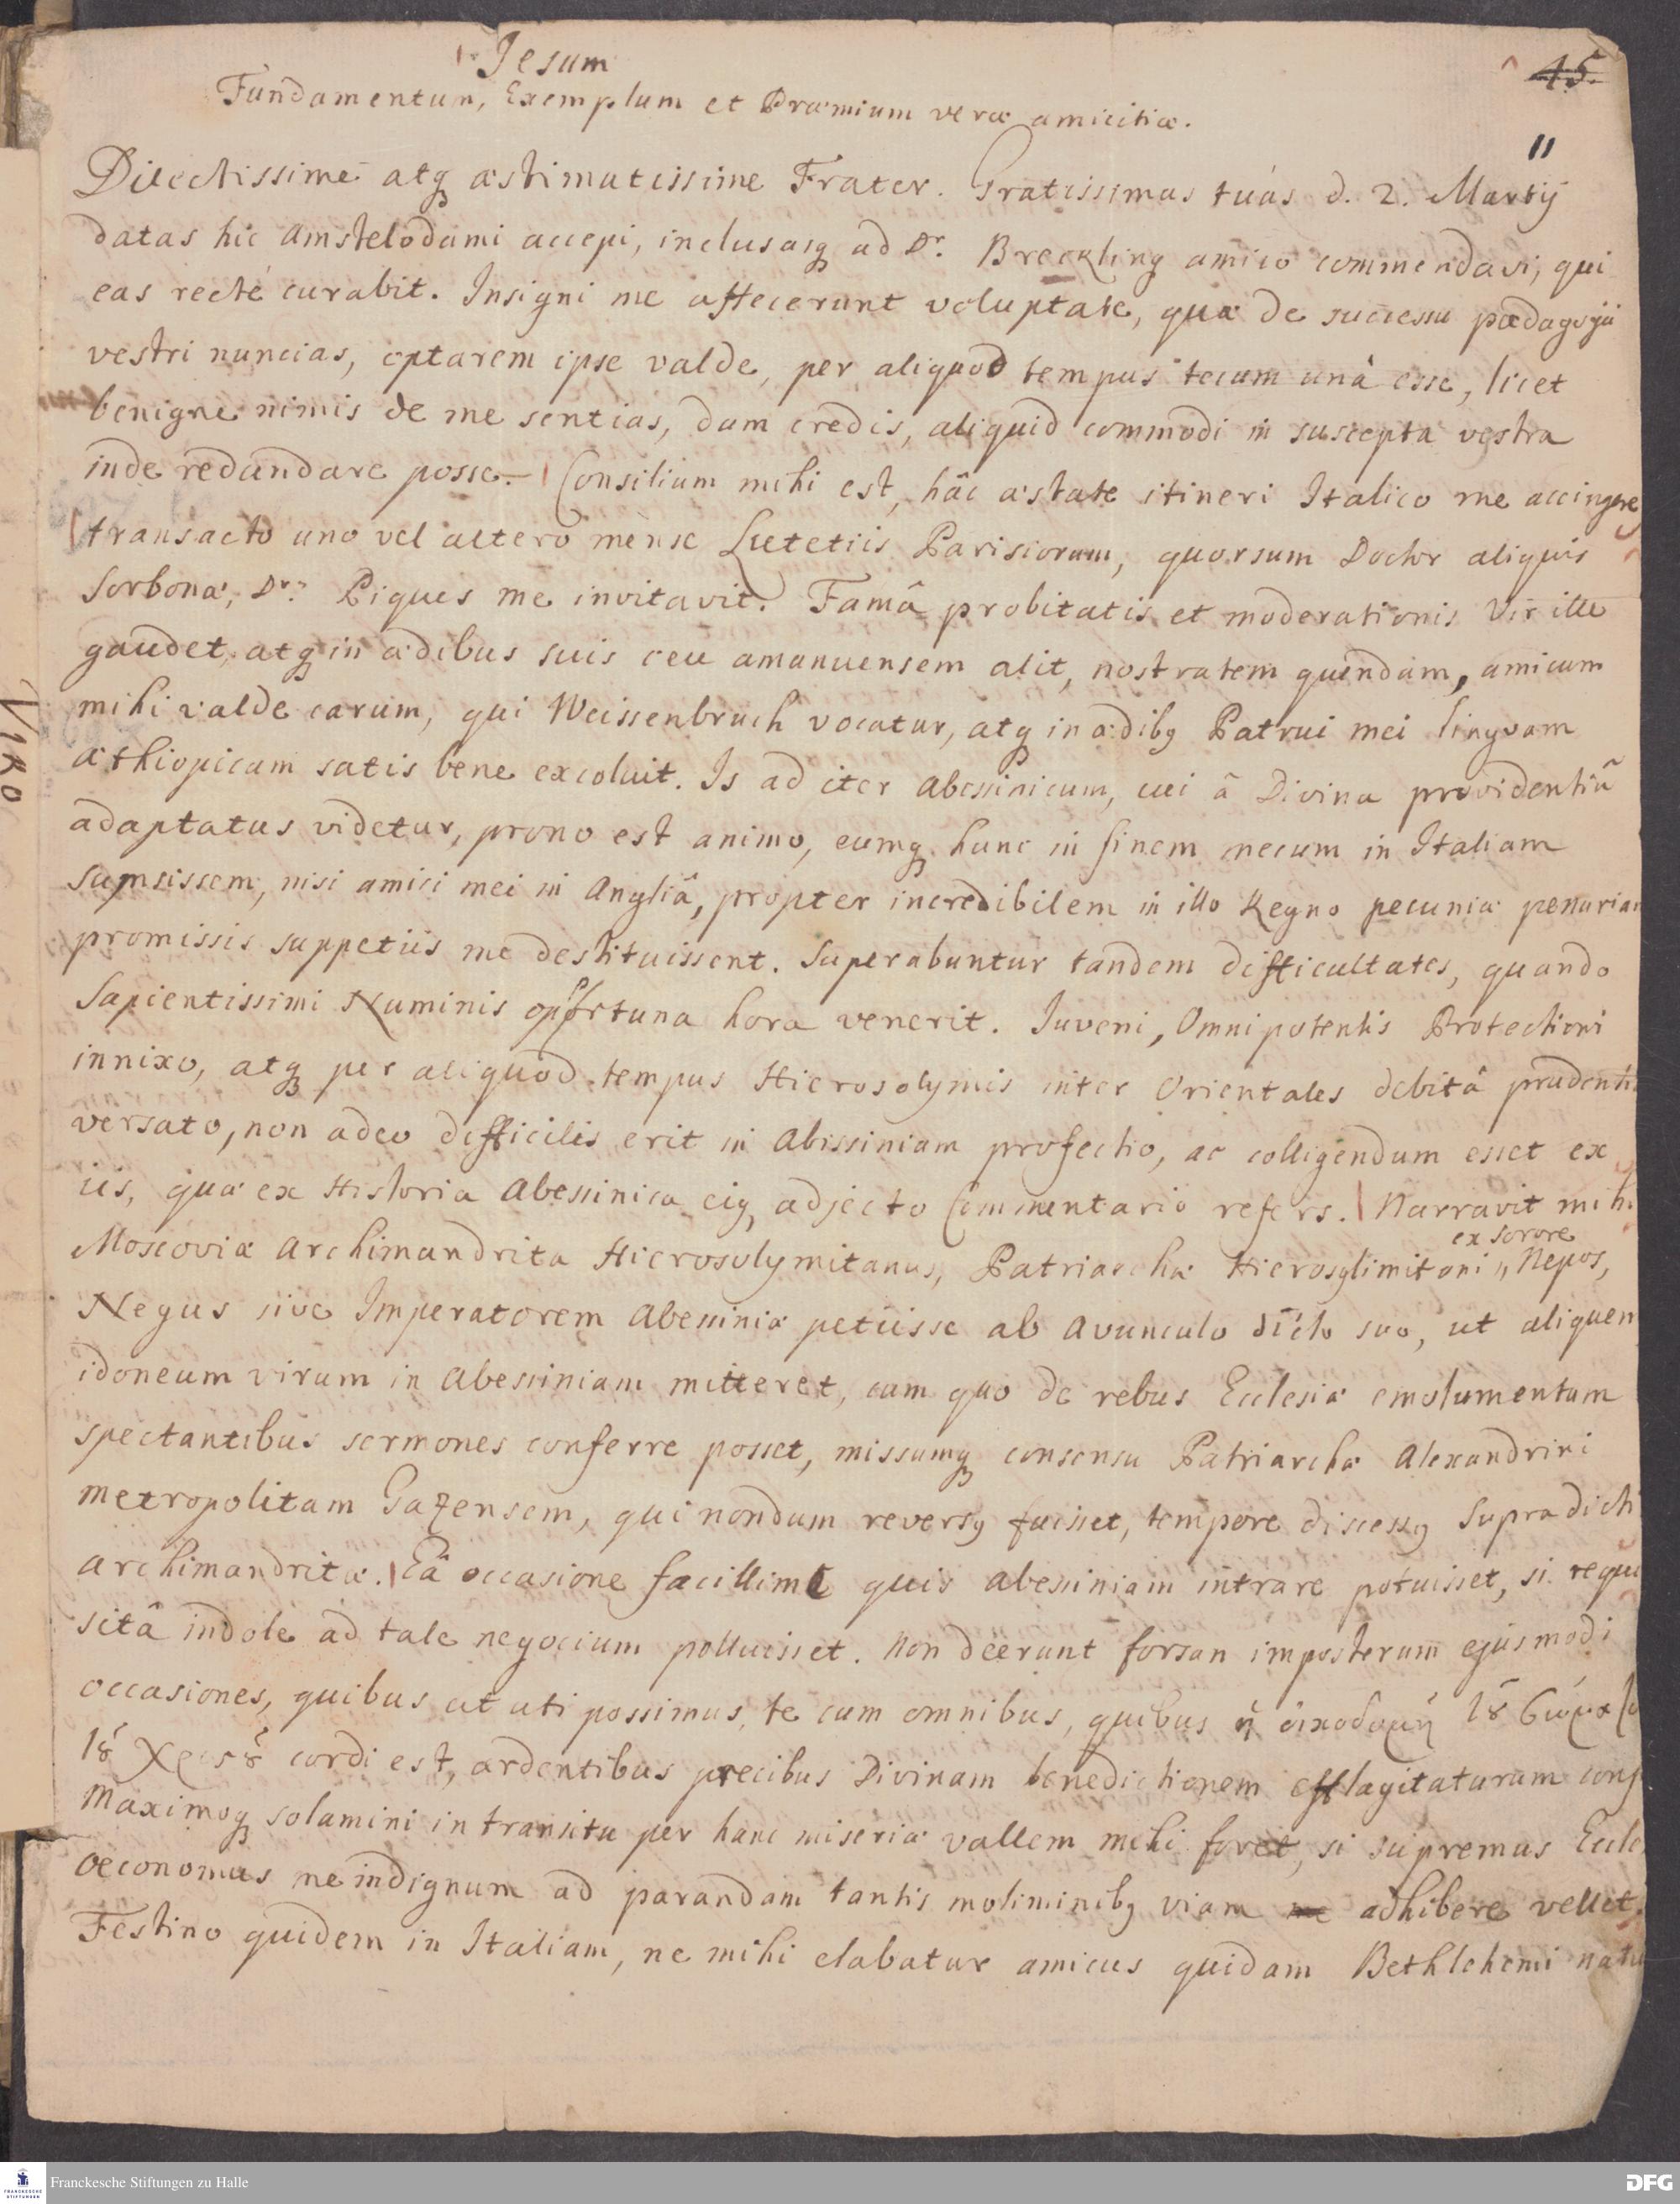 Jesum
45.
Fundamentum, Exemplum et Præmium veræ amicitiæ.
11
Dilectissime atq æstimatissime Frater. Gratissimas tuas d. 2. Martij
datas hic Amstelodami accepi, inclusasq ad Dr. Breckling amico commendavi, qui
eas recte curabit. Insigni me affecerunt voluptate, quæ de successu pædagogii
vestri nuncias, optarem ipse valde, per aliquod tempus tecum unâ esse, licet
benigne nimis de me sentias, dum credis, aliquid commodi in suscepta vestra
inde redundare posse. Consilium mihi est, hâc æstate itineri Italico me accingere
transacto uno vel altero mense Lutetiis Parisiorum, quorsum Doctor aliquis
Sorbonæ, Dr. Piques me invitavit. Famâ probitatis et moderationis Vir ille
gaudet atq in ædibus suis ceu amanuensem alit, nostratem quendam, amicum
mihi valde carum, qui Weissenbruch vocatur, atq in ædibq Patrui mei lingvam
æthiopicam satis bene excoluit. Is ad iter Abessinicum, cui â Divina providentiâ
adaptatus videtur, prono est animo, eumq hunc in finem mecum in Italiam
sumsissem, nisi amici mei in Angliâ, propter incredibilem in illo Regno pecuniæ penuriam
promissis suppetiis me destituissent. Superabuntur tandem difficultates, quando
Sapientissimi Numinis opportuna hora venerit. Iuveni, Omnipotentis Protectioni
innixo, atq per aliquod tempus Hierosolymis inter Orientales debitâ prudenti
versato, non adeo difficilis erit in Abissiniam profectio, ac colligendum esset ex
iis, quæ ex Historia Abessinica eiq adjecto Commentario refers. Narravit mihi
Moscoviæ Archimandrita Hierosolymitanus, Patriarchæ Hierosylimitani ex sorore Nepos,
Negus sive Imperatorem Abessiniæ petiisse ab Avunculo dicto suo, ut aliquem
idoneum virum in Abessiniam mitteret, cum quo de rebus Ecclesiæ emolumentum
spectantibus sermones conferre posset, missumq consensu Patriarchæ Alexandrini
metropolitam Gazensem, qui nondum reversq fuisset, tempore discessq supradicti
Archimandritæ. Eâ occasione facillime quis Abessiniam intrare potuisset, si requi
sitâ indole ad tale negocium polluisset. Non deerunt forsan imposterum ejusmodi
occasiones, quibus ut uti possimus, te cum omnibus, quibus ἡ οἰκοδομὴ τȣ̃ σώματο
τȣ̃ Χριστȣ̃ cordi est, ardentibus precibus Divinam benedictionem efflagitaturum conf
Maximoq solamini in transitu per hanc miseriæ vallem mihi foret, si supremus Eccle
Oeconomus me indignum ad parandam tantis moliminibq viam adhibere vellet.
Festino quidem in Italiam, ne mihi elabatur amicus quidam Bethlehemi natu
Franckesche Stiftungen zu Halle
DFG